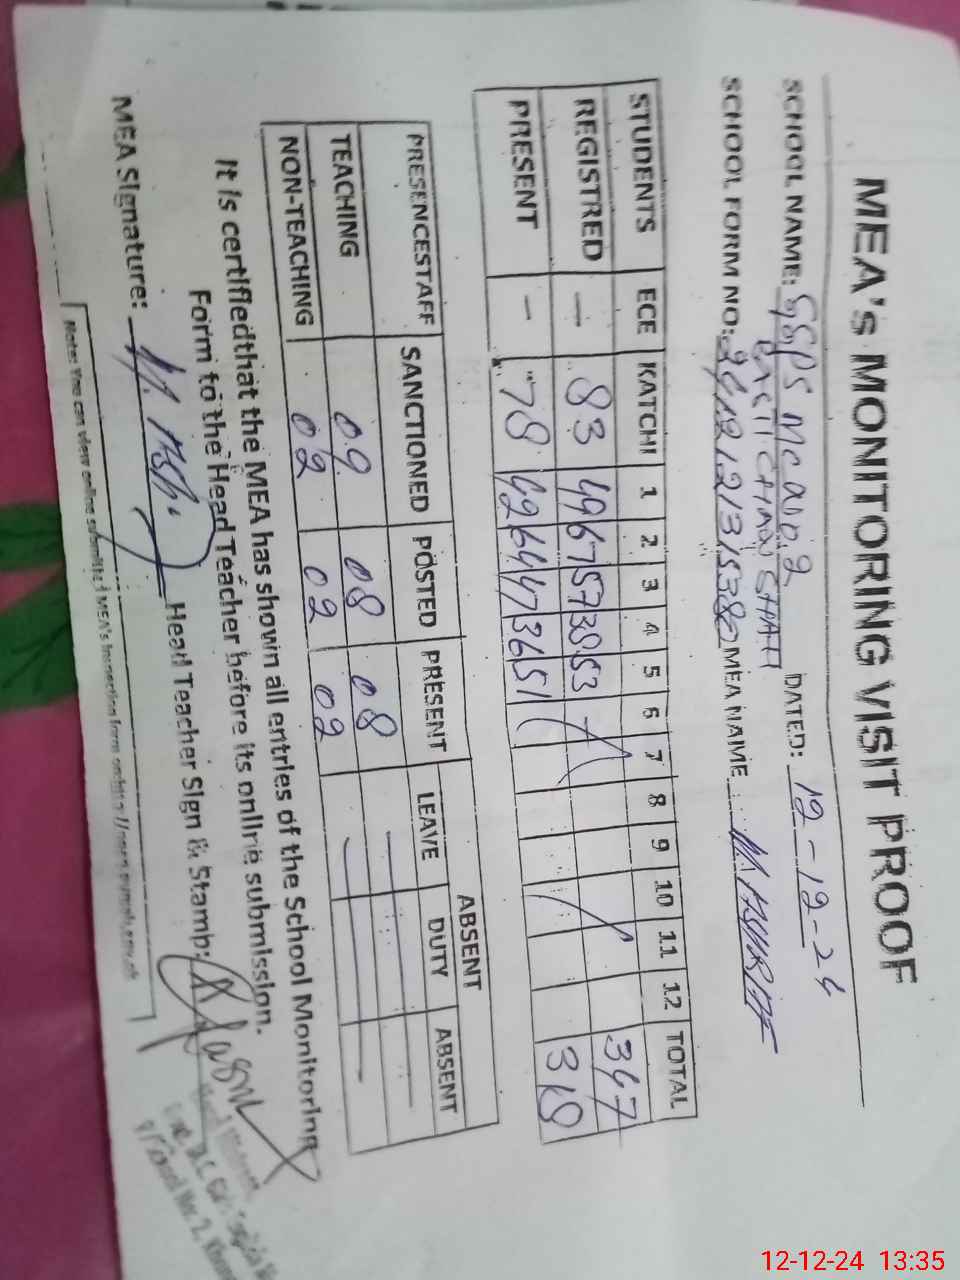 MEA's MONITORING VISIT PROOF
SCHOOL NAME: GGPS MC no.2 DATED: 12-12-24
SCHOOL FORM NO: MEA NAME
STUDENTS ECE KATCHI 1 2 3 4 5 6 7 8 9 10 11 12 TOTAL
REGISTRED — 83 49 67 57 38 53 347
PRESENT — 78 42 64 47 36 51 318
PRESENCESTAFF SANCTIONED POSTED PRESENT ABSENT
LEAVE DUTY ABSENT
TEACHING 09 08 08 — —
NON-TEACHING 02 02 02 — —
It is certifiedthat the MEA has shown all entries of the School Monitoring
Form to the Head Teacher before its online submission.
MEA Signature: Head Teacher Sign & Stamp:
Note: You can view online submitted MEA's Inspection form on
School No. 2,
12-12-24 13:35